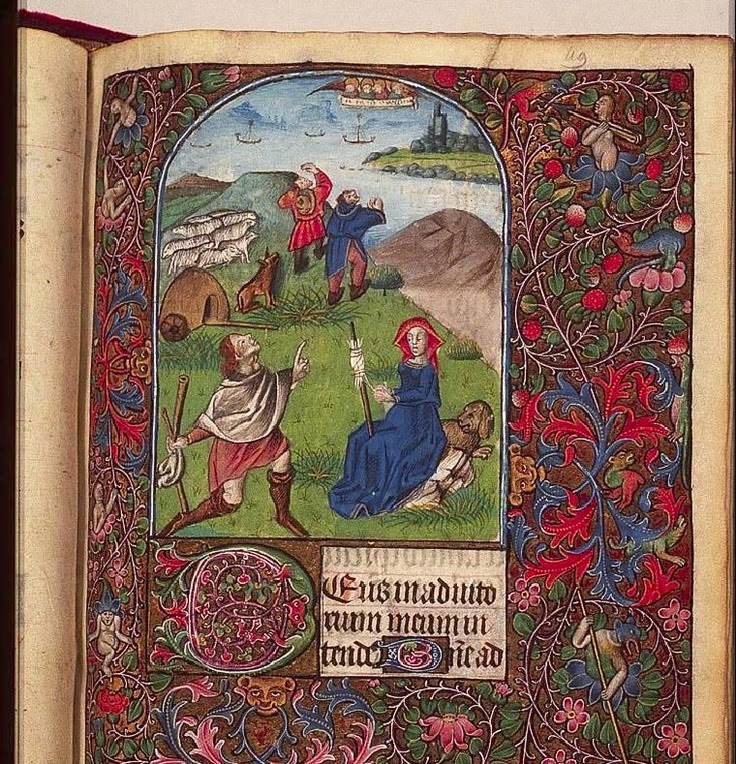 49
DEus in adiuto
rium meum in
tende Dñe ad